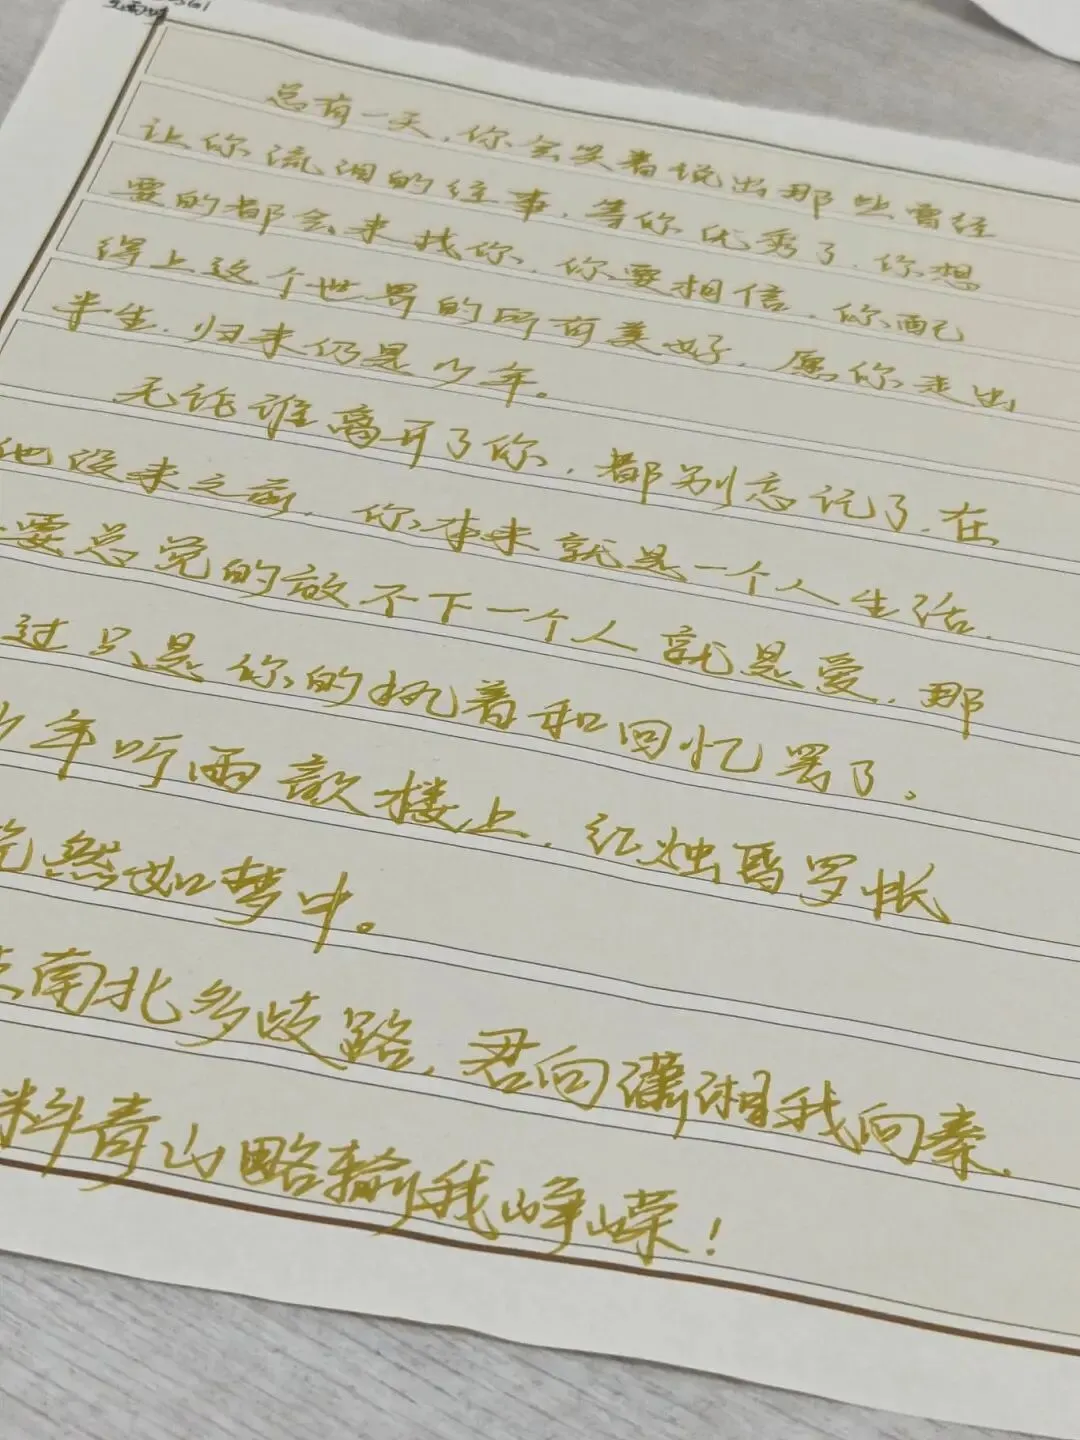 总有一天,你会笑着说出那些曾经
让你流泪的往事,等你优秀了,你想
要的都会来找你,你要相信,你配
得上这个世界的所有美好,愿你走出
半生,归来仍是少年。
无论谁离开了你,都别忘记了,在
他没来之前,你本来就是一个人生活,
要总觉的放不下一个人就是爱,那
过只是你的执着和回忆罢了。
少年听雨歌楼上,红烛昏罗帐
恍然如梦中。
南北多歧路,君向潇湘我向秦,
料青山略输我峥嵘!